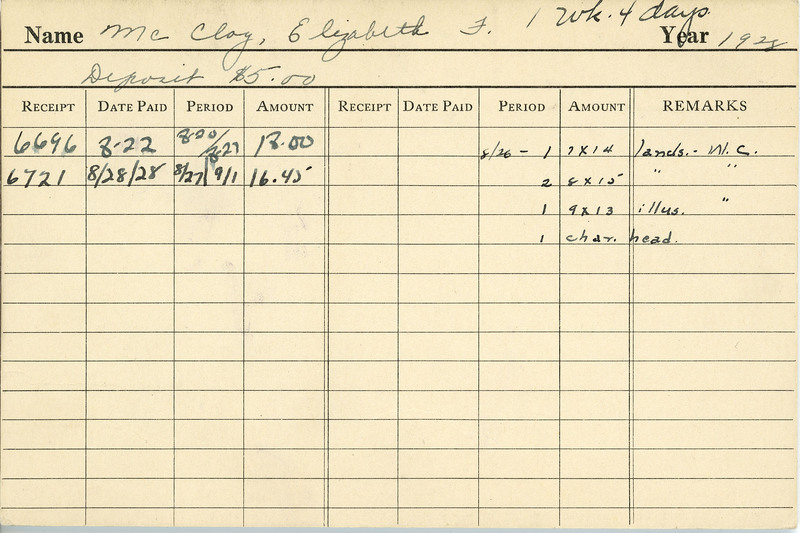 1 Wk. 4 days
Name Mc Cloy, Elizabeth F. Year 1928
Deposit $5.00
RECEIPT DATE PAID PERIOD AMOUNT RECEIPT DATE PAID PERIOD AMOUNT REMARKS
6696 8-22 8-20/8-27 18.00 8/26 - 1 7 x 14 lands. - W.C.
6721 8/28/28 8/27/9/1 16.45 2 8 x 15 " "
1 9 x 13 illus. "
1 char. head.